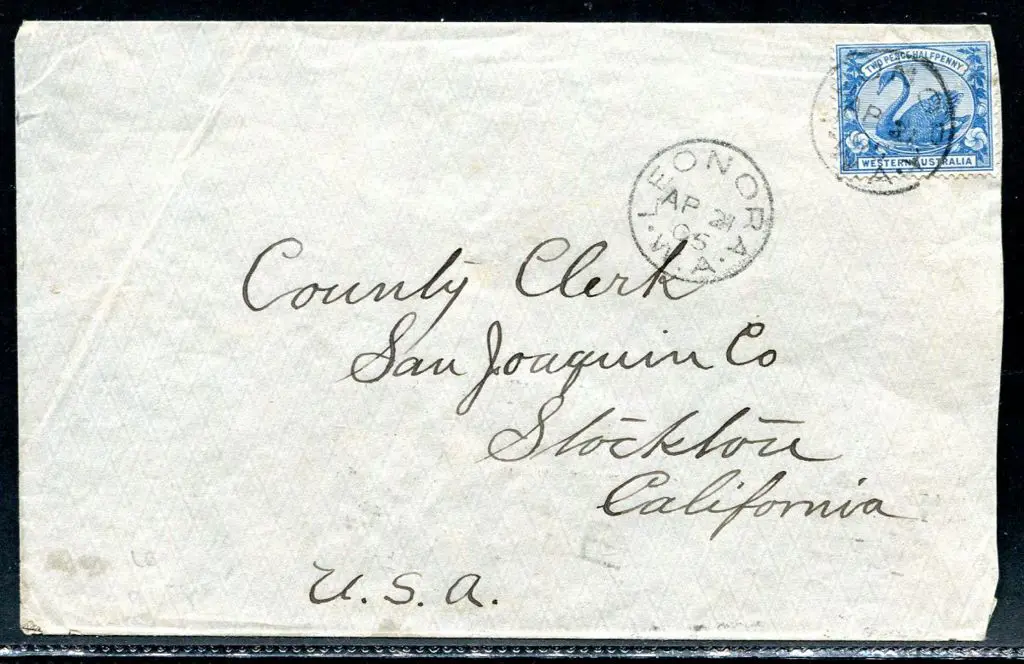 TWO PENCE HALFPENNY
WESTERN AUSTRALIA
LEONORA
AP 21
05
W.A.
County Clerk
San Joaquin Co
Stockton
California
U.S.A.